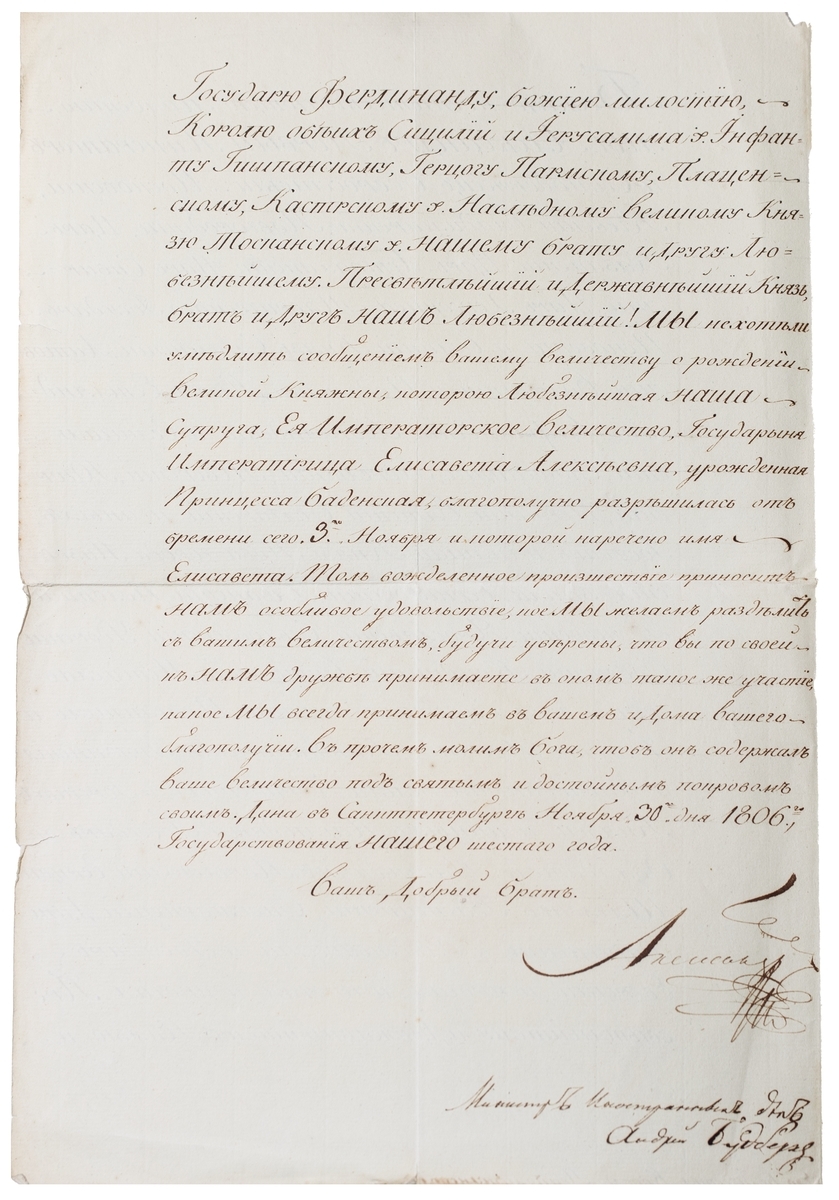 Государю Фердинанду, Божіею милостію,
Королю обѣихъ Сицилій и Іерусалима &. Инфан=
ту Гишпанскому, Герцогу Пармскому, Плацен=
скому, Кастрскому &. Наслѣдному Великому Кня=
зю Тосканскому &. НАШЕМУ Брату и Другу Лю=
безнѣйшему. Пресвѣтлѣйшій и Державнѣйшій Князь,
братъ и Другъ НАШЪ Любезнѣйшій! МЫ нехотѣли
умѣдлить сообщеніемъ вашему величеству о рожденіи
Великой Княжны, которою Любезнѣйшая НАША
Супруга, Ея Императорское Величество, Государыня
Императрица Елисавета Алексѣевна, урожденная
Принцесса Баденская, благополучно разрѣшилась отъ
времени сего 3.го Ноября и которой наречено имя
Елисавета. Толь вожделенное произшествіе приноситъ
НАМЪ особливое удовольствіе, кое МЫ желаемъ раздѣлить
съ вашимъ величествомъ, будучи увѣрены, что вы по своей
къ НАМЪ дружбѣ принимаете въ ономъ такое же участіе,
какое МЫ всегда принимаемъ въ вашемъ и Дома вашего
благополучіи. Въ прочемъ молимъ Бога, чтобъ онъ содержалъ
ваше величество подъ святымъ и достойнымъ покровомъ
своимъ. Дана въ Санктпетербургѣ Ноября 30го дня 1806.го,
Государствованія НАШЕГО шестаго года.
Вашъ Добрый братъ.
Александръ
Министръ Иностранныхъ дѣлъ
Андрей Будбергъ